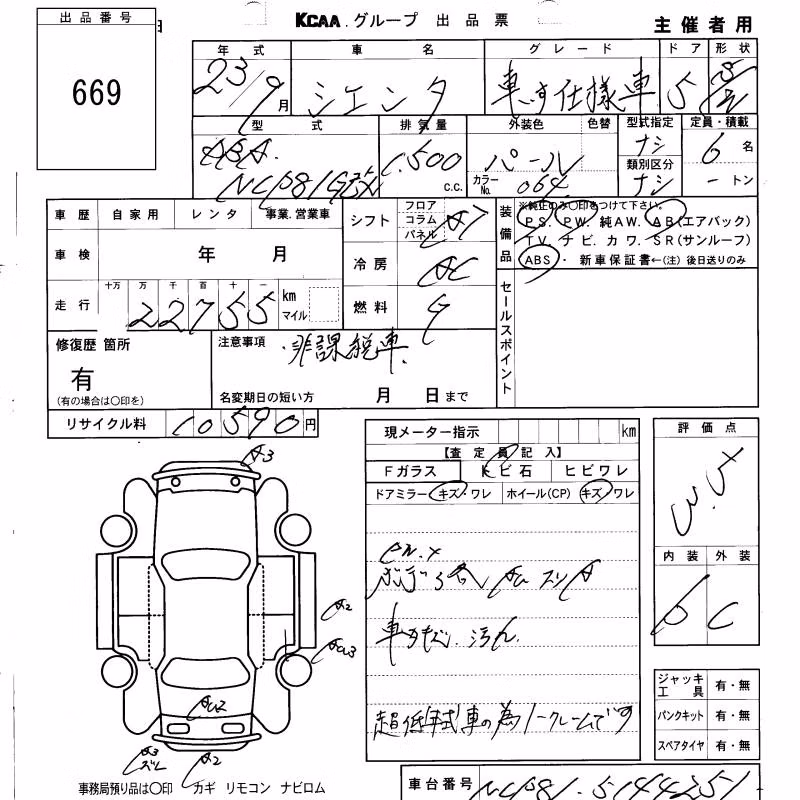 出品番号
669
KCAA.グループ 出品票
主催者用
年式 車名 グレード ドア 形状
23/9月 シエンタ 車いす仕様車 5
型式 排気量 外装色 色替 型式指定 定員・積載
ABA. 1.500 c.c. パール ナシ 6名
カラーNo. 064 類別区分 ナシ ートン
車歴 自家用 レンタ 事業.営業車
シフト フロア コラム パネル AT
装備品
※純正のみ〇印をつけて下さい。
PS. PW. 純AW. AB(エアバック)
TV. ナビ. カワ. SR(サンルーフ)
ABS・ 新車保証書←(注) 後日送りのみ
車検 年 月
冷房 AC
走行 十万 万 千 百 十 一
22755 km マイル
燃料 G
セールスポイント
修復歴 箇所
有
(有の場合は〇印を)
注意事項
非課税車.
名変期日の短い方 月 日まで
リサイクル料 10590円
現メーター指示 km
【査定員記入】
Fガラス トビ石 ヒビワレ
ドアミラー キズ・ワレ ホイール(CP) キズ・ワレ
車内 汚れ.
超低年式車の為ノークレームです
評価点
内装 外装
C
ジャッキ工具 有・無
パンクキット 有・無
スペアタイヤ 有・無
A3
A2
AU3
AU2
A3
ズレ
A2
事務局預り品は〇印 カギ リモコン ナビロム
車台番号 NCP81-5144251